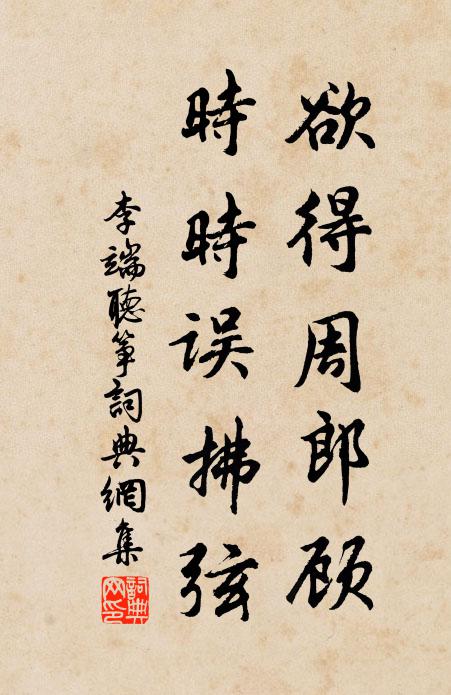 欲得周郎顾
時時误拂弦
李端聽筝詞典網集
詞典网印